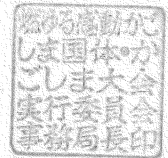 燃ゆる感動かご
しま国体・か
ごしま大会
実行委員会
事務局長印